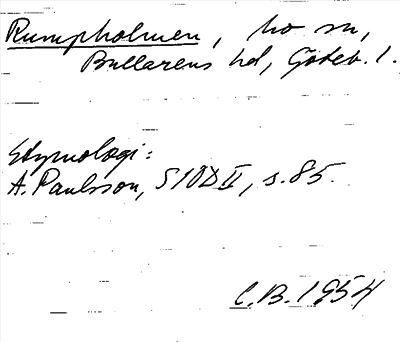 Rumpholmen, ho sn,
Bullarens hd, Göteb. l.
Etymologi:
A. Paulsson, SIOD II, s. 85.
C.B. 1954